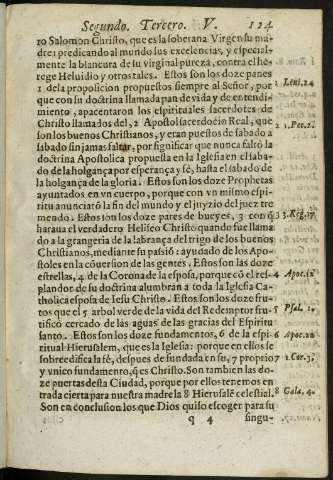 Segundo. Tercero. V. 124
ro Salomon Christo, que es la soberana Virgen su ma-
dre: predicando al mundo sus excelencias, y especial-
mente la blancura de su virginal pureza, contra el he-
rege Heluidio y otros tales. Estos son los doze panes
1 de la proposicion propuestos siempre al Señor, por 1 Leui. 24
que con su doctrina llamada pan de vida y de entendi-
miento, apacentaron los espirituales sacerdotes de
Christo llamados del, 2 Apostol Sacerdocio Real, que 2 1. Pet. 2.
son los buenos Christianos, y eran puestos de sabado a
sabado sin jamas faltar, por significar que nunca faltò la
doctrina Apostolica propuesta en la Iglesia en el saba-
do de la holgança por esperança y fé, hasta el sabado de
la holgança de la gloria. Estos son los doze Prophetas
ayuntados en vn cuerpo, porque con vn mismo espi-
ritu anunciarõ la fin del mundo y el juyzio del juez tre
mendo. Estos son los doze pares de bueyes, 3 con q̃ 3 3. Reg. 17.
haraua el verdadero Heliseo Christo quando fue llama
do a la grangeria de la labrança del trigo de los buenos
Christianos, mediante su passió y ayudado de los Apo-
stoles en la cõuersion de las gentes. Estos son las doze
estrellas, 4 de la Corona de la esposa, porque cõ el res- 4 Apoc. 12
plandor de su doctrina alumbran a toda la Iglesia Ca-
tholica esposa de Iesu Christo. Estos son los doze fru-
tos que el 5 arbol verde de la vida del Redemptor fru- 5 Psal. 1.
tificó cercado de las aguas de las gracias del Espiritu
santo. Estos son los doze fundamentos, 6 de la espi- 6 Apoc. 21
ritual Hierusalem, que es la Iglesia: porque en ellos se
sobreedifica la fè, despues de fundada en su, 7 proprio 7 1. Cor. 3.
y vnico fundamento, q̃ es Christo. Son tambien las do-
ze puertas desta Ciudad, porque por ellos tenemos en
trada cierta para nuestra madre la 8 Hierusalẽ celestial. 8 Gala. 4.
Son en conclusion los que Dios quiso escoger para su
q 4 singu-